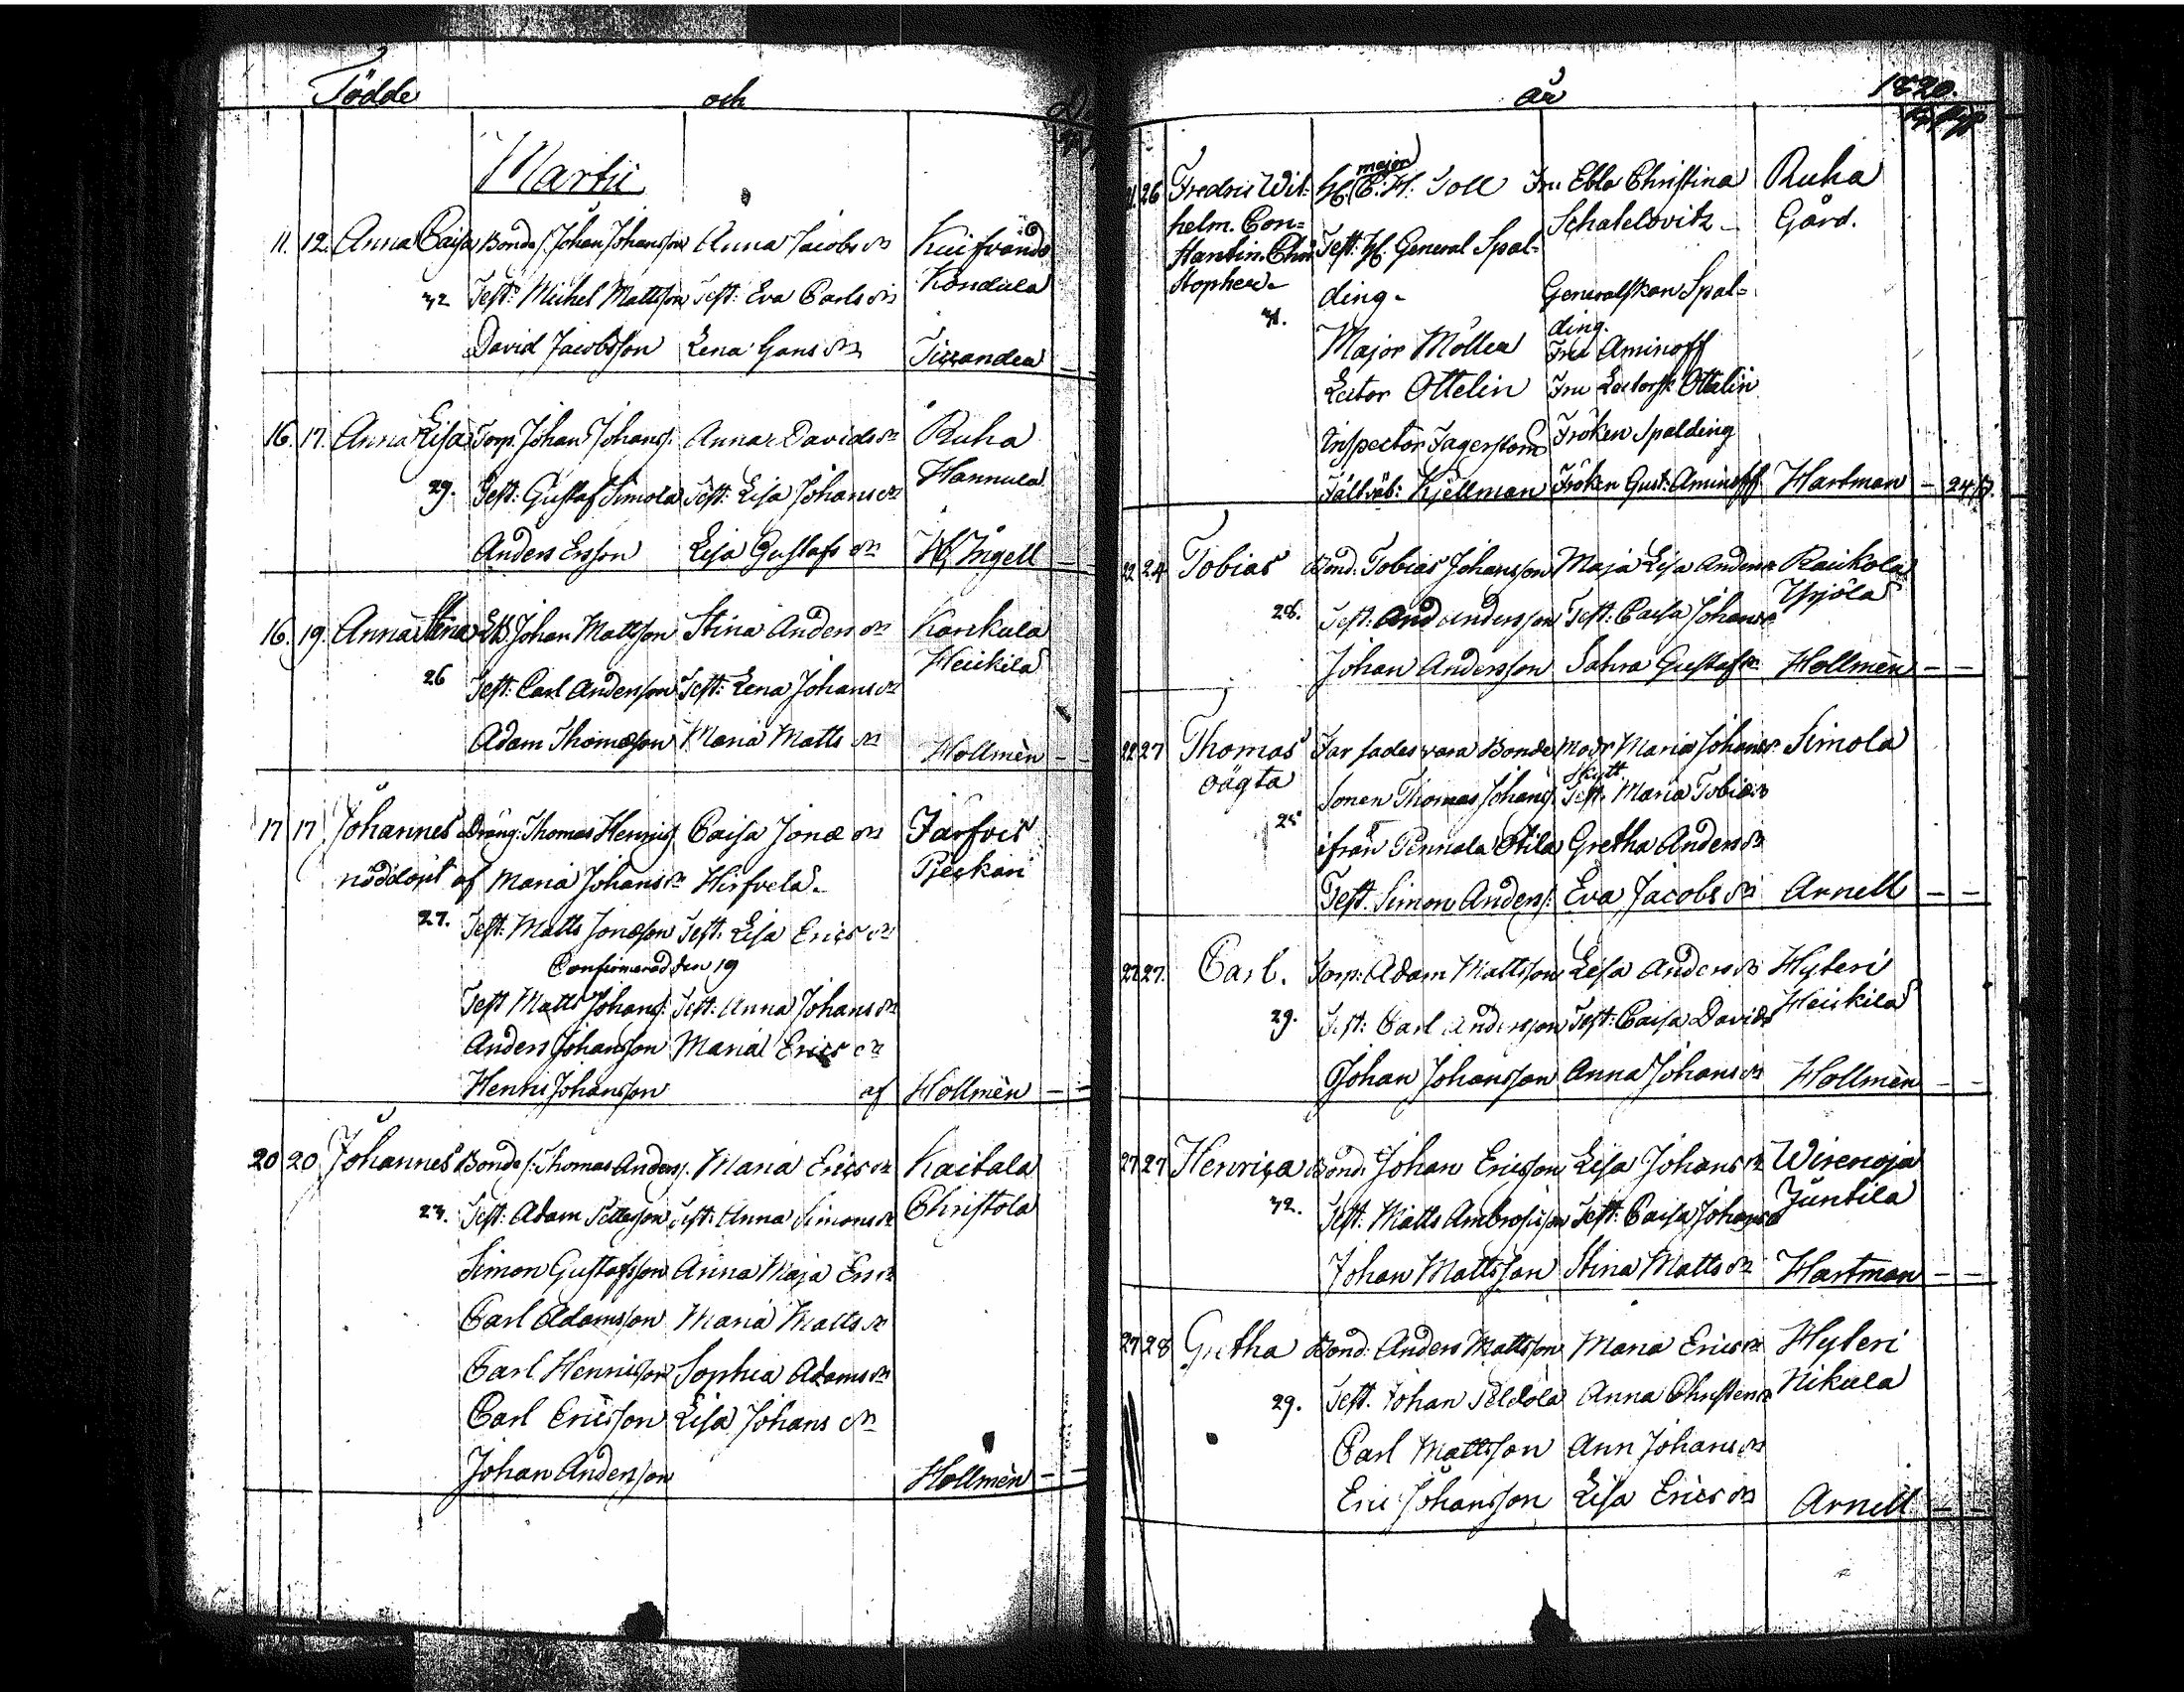 Födde och
Martii
11. 12. Anna Caisa Bonde s. Johan Johansson Anna Jacobs dr Kuifvando
32 Test: Michel Mattsson Test: Eva Carls dr Kondula
David Jacobsson Lena Hans dr Tirrandea
16. 17. Anna Lisa Torp. Johan Johans s. Anna Davids dr Ruha
29. Test: Gustaf Simola Test: Lisa Johans dr Hannula
Anders Ersson Lisa Gustafs dr H. Ingell
16. 19. Anna Stina Johan Mattsson Stina Anders dr Kankula
26 Test: Carl Andersson Test: Lena Johans dr Heickilä
Adam Thomasson Maria Matts dr Hollmèn
17 17 Johannes Dräng: Thomas Henrics Caisa Jonæ dr Jarfvis
nöddöpt af Maria Johans dr Hirfvelä. Pieskari
27. Test: Matts Jonæson Test: Lisa Erics dr
Confirmerad den 19
Test Matts Johans: Test: Anna Johans dr
Anders Johansson Maria Erics dr
Henric Johansson af Hollmèn
20 20 Johannes Bonde s: Thomas Anders s. Maria Erics dr Kaitala
23. Test: Adam Pettersson Test: Anna Simons dr Christola
Simon Gustafsson Anna Maja Ers dr
Carl Adamsson Maria Matts dr
Carl Henricsson Sophia Adams dr
Carl Ericsson Lisa Johans dr
Johan Andersson Hollmèn
år 1820.
21. 26 Fredric Wil= H. major C. H. Toll Fru Ebba Christina Ruha
helm. Con= Schatelovitz Gård.
stantin. Chri Test: H. General Spal=
stopher. ding. Generalskan Spal=
31. ding.
Major Möller Fru Aminoff
Lector Ottelin Fru Lectorsk: Ottelin
Inspector Fagerstom Fröken Spalding
Fältväb: Kjellman Fröken Gust: Aminoff Hartman – 24
22 24 Tobias Bond. Tobias Johansson Maja Lisa Anders Raickola
28. Test: And Andersson Test: Caisa Johans Yrjölä
Johan Andersson Sahra Gustafs dr Hollmèn
22 27 Thomas Far sades vara Bonde Modr Maria Johans dr Simola
oägta Sonen Thomas Johans Test. Maria Tobiæ dr
25 ifrån Pennala Otila Gretha Anders dr
Test. Simon Anders: Eva Jacobs dr Arnell
22 27. Carl. Torp: Adam Mattsson Lisa Anders dr Hyteri
29. Test: Carl Andersson Test: Caisa Davids Heickilä
Johan Johansson Anna Johans dr Hollmèn
27 27 Henrica Bond. Johan Ericsson Lisa Johans dr Wirenoja
32. Test: Matts Ambrosisson Test: Caisa Johans Juntila
Johan Mattsson Stina Matts dr Hartman
27 28 Gretha Bond: Anders Mattsson Maria Erics dr Hyteri
29. Test. Johan Peldola Anna Christens Nikula
Carl Mattsson Ann Johans dr
Eric Johansson Lisa Erics dr Arnell